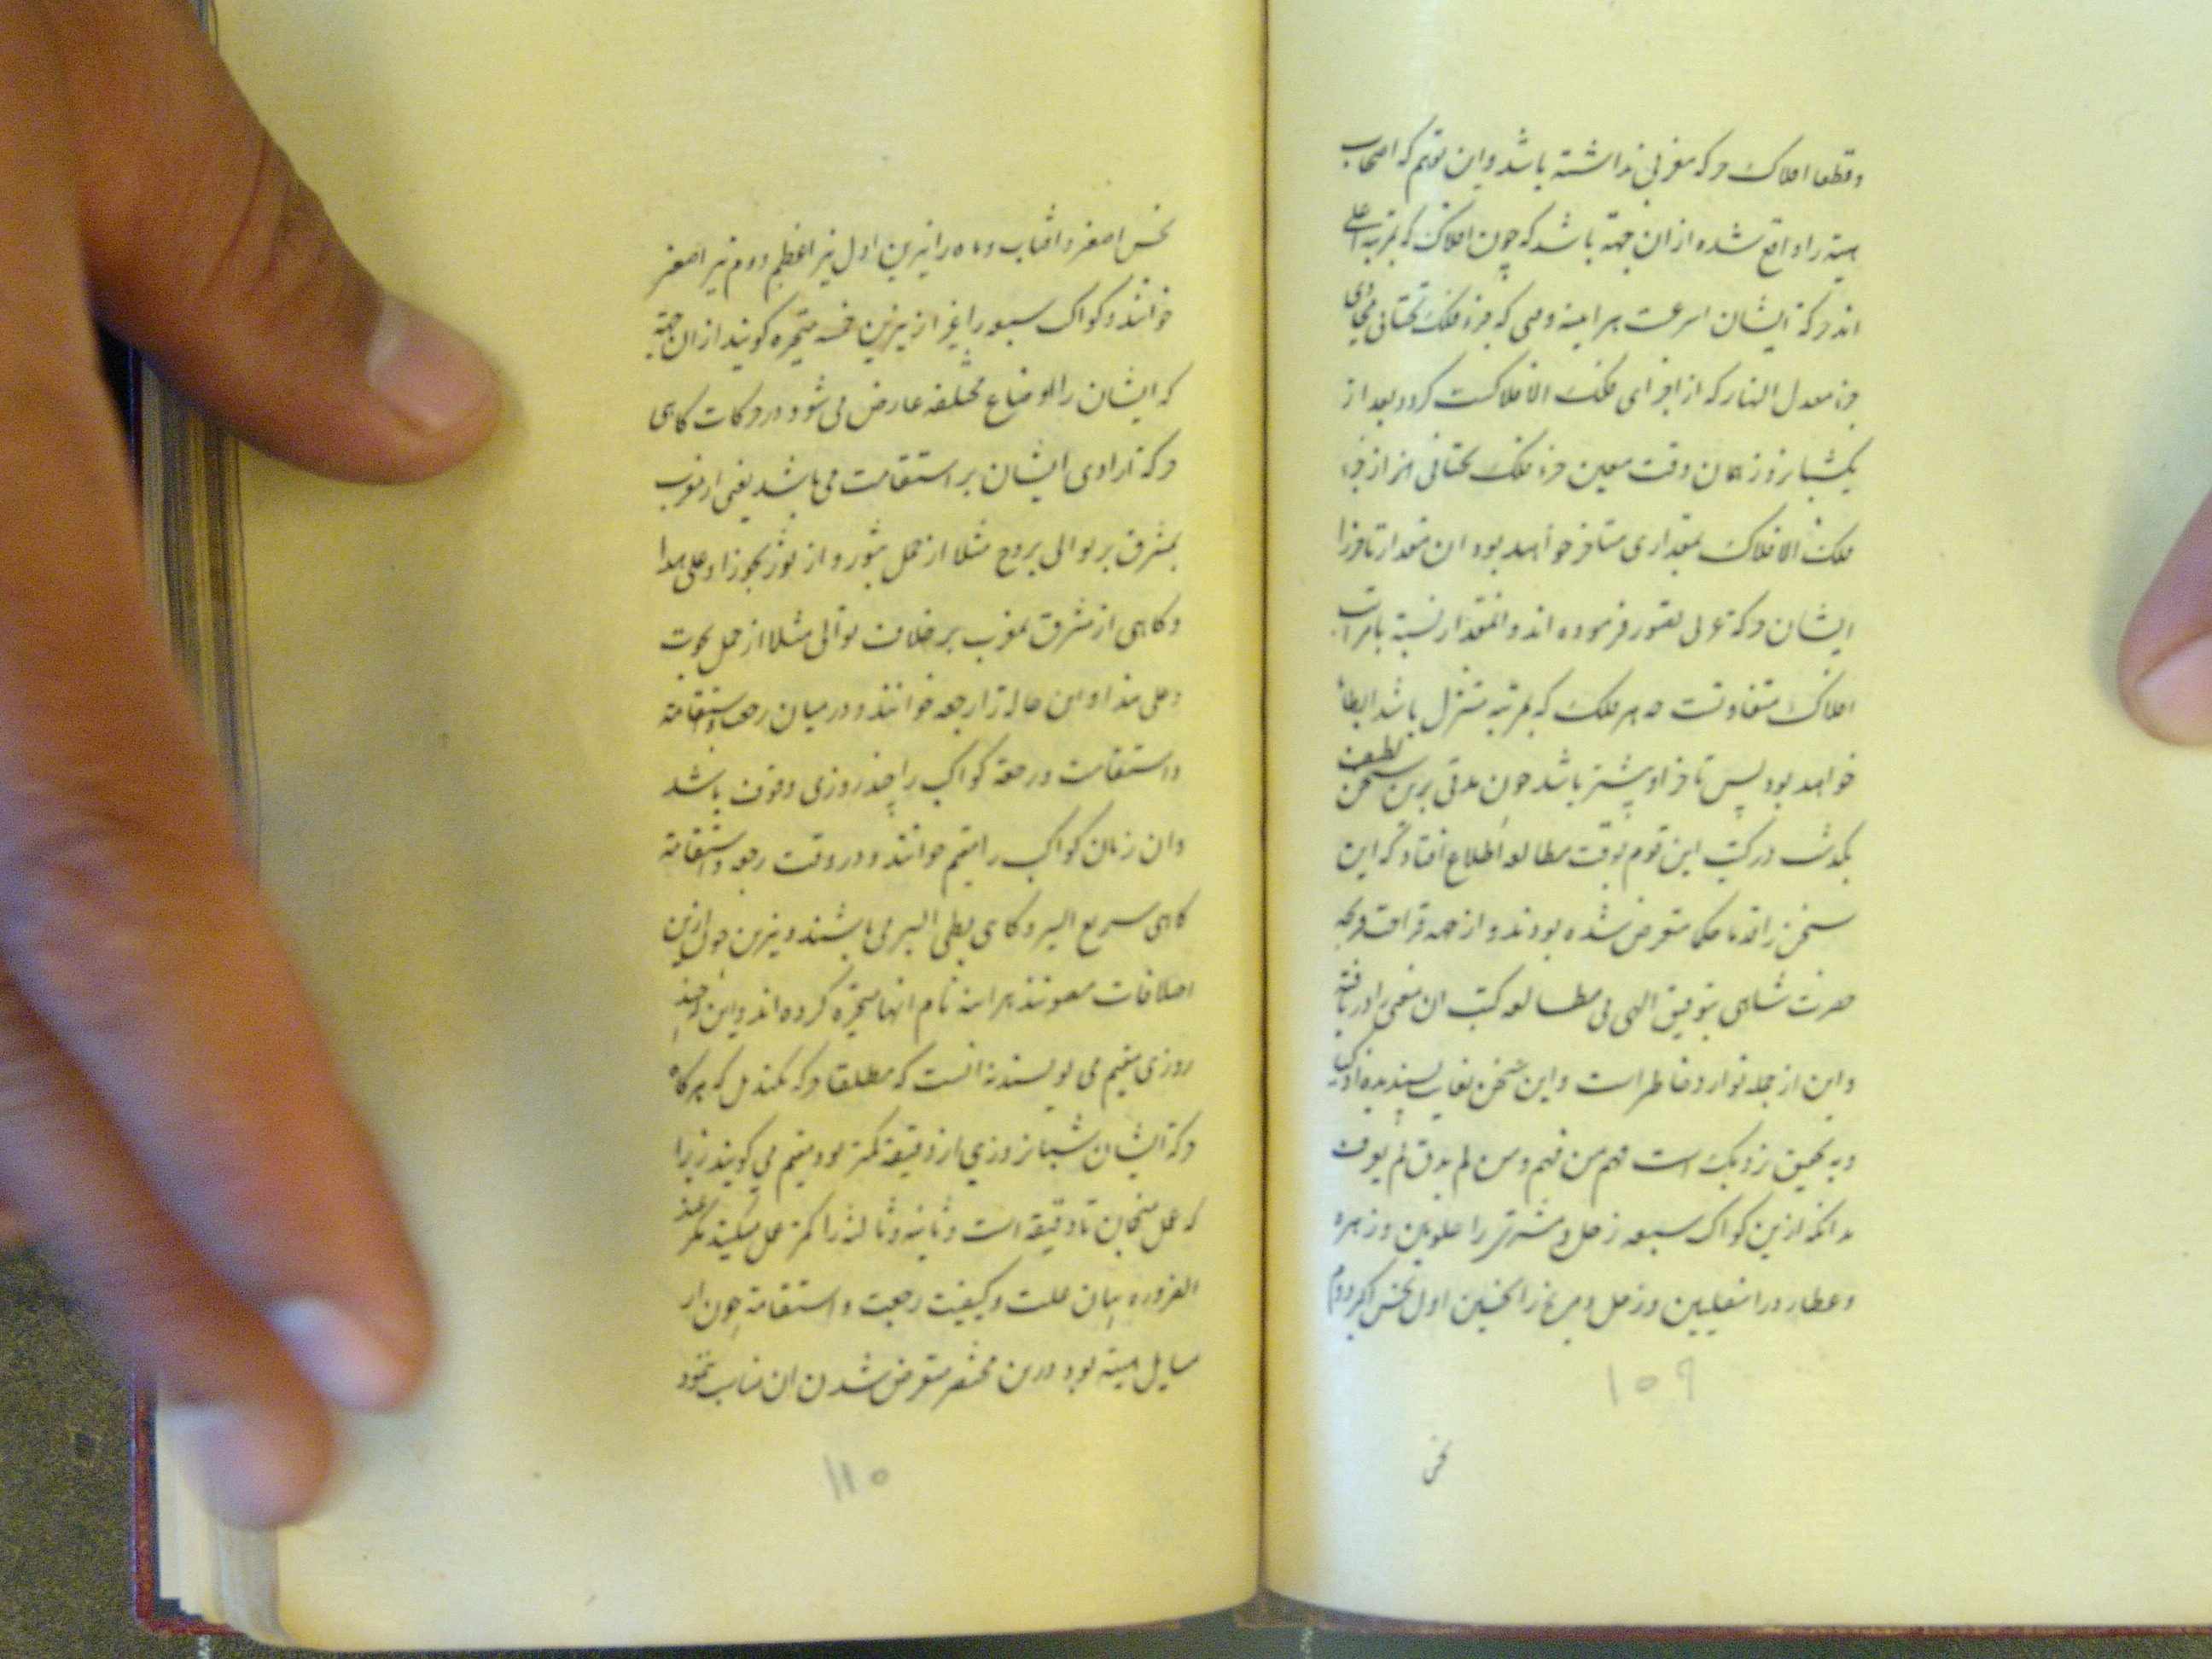 و قطعا افلاک حرکه مغربی نداشته باشد و این توهم که اصحاب
هیئه را واقع شده از ان جهة باشد که چون افلاک که بمرتبه اعلی
اند حرکة ایشان اسرعست هر اینه وقتی که جزء فلک تحتانی محاذی
جزء معدل النهار که از اجزای فلک الافلاکست کردد بعد از
یکشبانروز همان وقت معین جزء فلک تحتانی از جزء
فلک الافلاک بمقداری متاخر خواهد بود ان مقدار تاخر را
ایشان حرکة غربی تصور فرموده اند و انمقدار نسبة بامراتب
افلاک متفاوتست چه هر فلک که بمرتبه متنزل باشد ابطاء
خواهد بود پس تاخر او بیشتر باشد چون مدتی برین سخن لطیف
بگذشت در کتب این قوم بوقت مطالعه اطلاع افتاد که این
سخن را قدما حکما متعرض شده بودند و از جهه
حضرت شاهی بتوفیق الهی بی مطالعه کتب ان معنی را دریافته
و این از جمله توارد خاطر است و این سخن بغایت پسندیده
و به تحقیق نزدیک است فهم من فهم و من لم یذق لم یعرف
بدانکه ازین کواکب سبعه زحل و مشتری را علویین و زهره
و عطارد را سفلیین و زحل و مریخ را نحسین اول نحس اکبر دوم
۱۰۹
نحس
نحس اصغر و افتاب و ماه را نیرین اول نیر اعظم دوم نیر اصغر
خوانند و کواکب سبعه را غیر از نیرین خمسه متحیره کویند از ان جهة
که ایشان را اوضاع مختلفه عارض می شود در حرکات کاهی
حرکة ایشان بر استقامت می باشد یعنی از مغرب
بمشرق بر توالی بروج مثلا از حمل بثور و از ثور بجوزا و علی هذا
و کاهی از مشرق بمغرب بر خلاف توالی مثلا از حمل بحوت
و علی هذا و این حالة را رجعه خوانند و در میان رجعه و استقامة
و استقامت و رجعة کواکب را چند روزی وقوف باشد
و ان زمان کواکب را مقیم خوانند و در وقت رجعه و استقامة
کاهی سریع السیر و کاهی بطی السیر می باشند و نیرین چون ازین
اختلافات مصونند هر اینه نام انها متحیره کرده اند و این چند
روزی مقیم می نویسند نه انست که مطلقا حرکه نکند بل که هرکاه
حرکة ایشان شبانروزی از دقیقه کمتر بود مقیم می کویند زیرا
که عمل منجمان تا دقیقه است و ثانیه و ثالثه را کمتر عمل میکنند مکر عند
الضروره بیان علت و کیفیت رجعت و استقامة چون از
مسایل هیئة بود درین مختصر متعرض شدن ان مناسب ننمود
۱۱۰